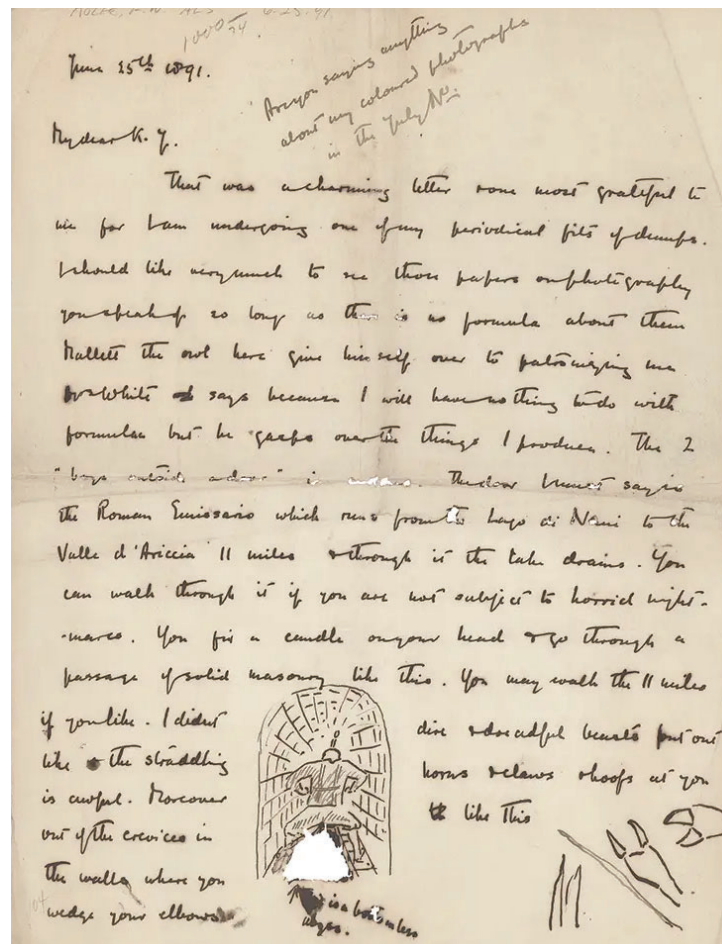 ROLFE, F.W. ALS 6.25.91.
June 25th 1891.
Are you saying anything
about my coloured photographs
in the July No.
My dear K. J.
That was a charming letter & one most grateful to
me for I am undergoing one of my periodical fits of dumps.
I should like very much to see those papers on photography
you speak of so long as there is no formula about them
Mallett the owl here give himself over to patronizing me
White says because I will have nothing to do with
formulae but he gasps over the things I produce. The 2
"boys outside a door" is The door I must say is
the Roman Emissario which runs from the Lago di Nemi to the
Valle d'Ariccia 11 miles & through it the lake drains. You
can walk through it if you are not subject to horrid night-
-mares. You fix a candle on your head & go through a
passage of solid masonry like this. You may walk the 11 miles
if you like. I didn't
like the straddling
is awful. Moreover
out of the crevices in
the walls where you
wedge your elbows
dire & dreadful beasts put out
horns & claws & hoofs at you
like this
is a bottomless
abyss.